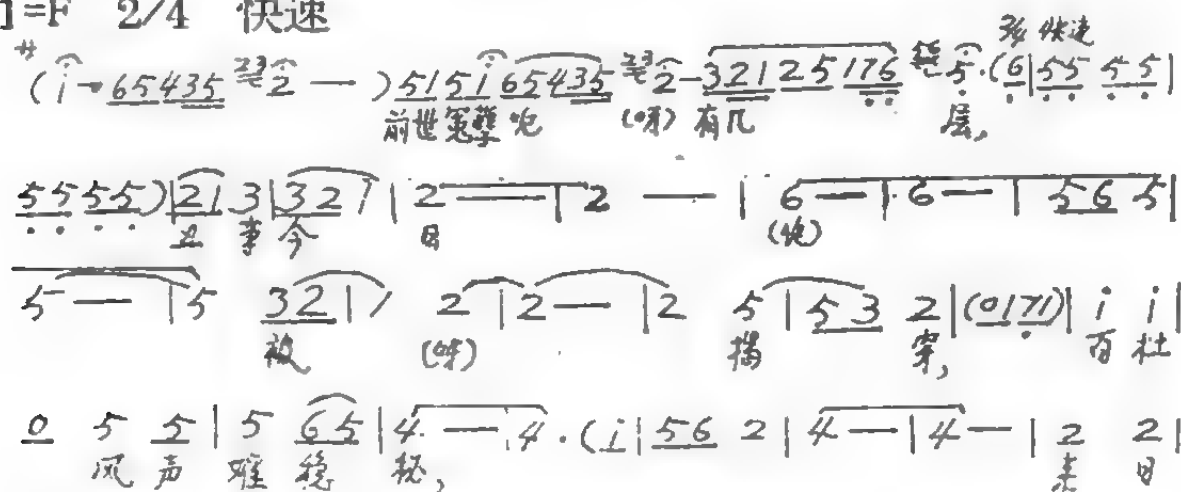 1=F 2/4 快速
サ 3/4 快速
(i — 65435 23 2 — ) 515i 65435 23 2 — 32125176 5·(6|55 55|
前世冤孽吔 (呀) 有几 层,
55 55)|21 3|32 1|2 —|2 —|6 —|6 —|565|
事今 日 (吔)
5 —|5 32|1 2|2 —|2 5|53 2|(0171)|i i|
被 (呀) 揭 穿, 百 杜
0 5 5|5 65|4 —|4·(i|56 2|4 —|4 —|2 2|
风 声 难 稳 秘, 来 日